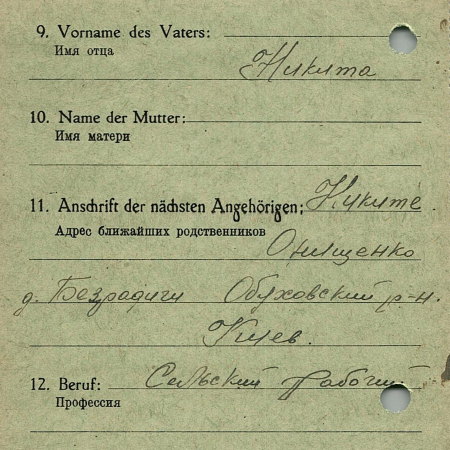 9. Vorname des Vaters:
Имя отца
Никита
10. Name der Mutter:
Имя матери
11. Anschrift der nächsten Angehörigen: Никите
Адрес ближайших родственников
Онищенко
д. Безрадичи Обуховский р-н.
Киев.
12. Beruf: Сельский рабочий
Профессия